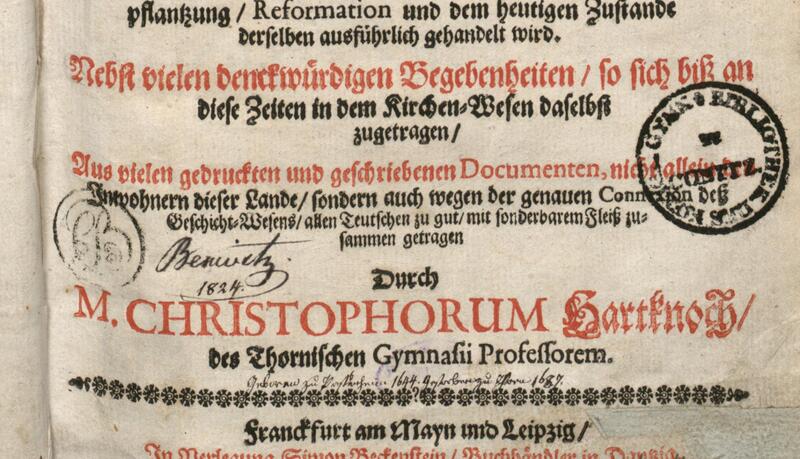 pflantzung / Reformation und dem heutigen Zustande
derselben ausführlich gehandelt wird.
Nebst vielen denckwürdigen Begebenheiten / so sich biß an
diese Zeiten in dem Kirchen-Wesen daselbst
zugetragen /
Aus vielen gedruckten und geschriebenen Documenten, nicht allein
Inwohnern dieser Lande / sondern auch wegen der genauen Connexion deß
Geschicht-Wesens / allen Teutschen zu gut / mit sonderbarem Fleiß zu-
sammen getragen
1824.
Durch
M. CHRISTOPHORUM Hartknoch /
des Thornischen Gymnasii Professorem.
Geboren zu 1644 Gestorben zu Thorn 1687.
Franckfurt am Mayn und Leipzig /
In Verlegung Simon Beckenstein / Buchhändler in Dantzig.
BIBLIOTHEK DES
ZU